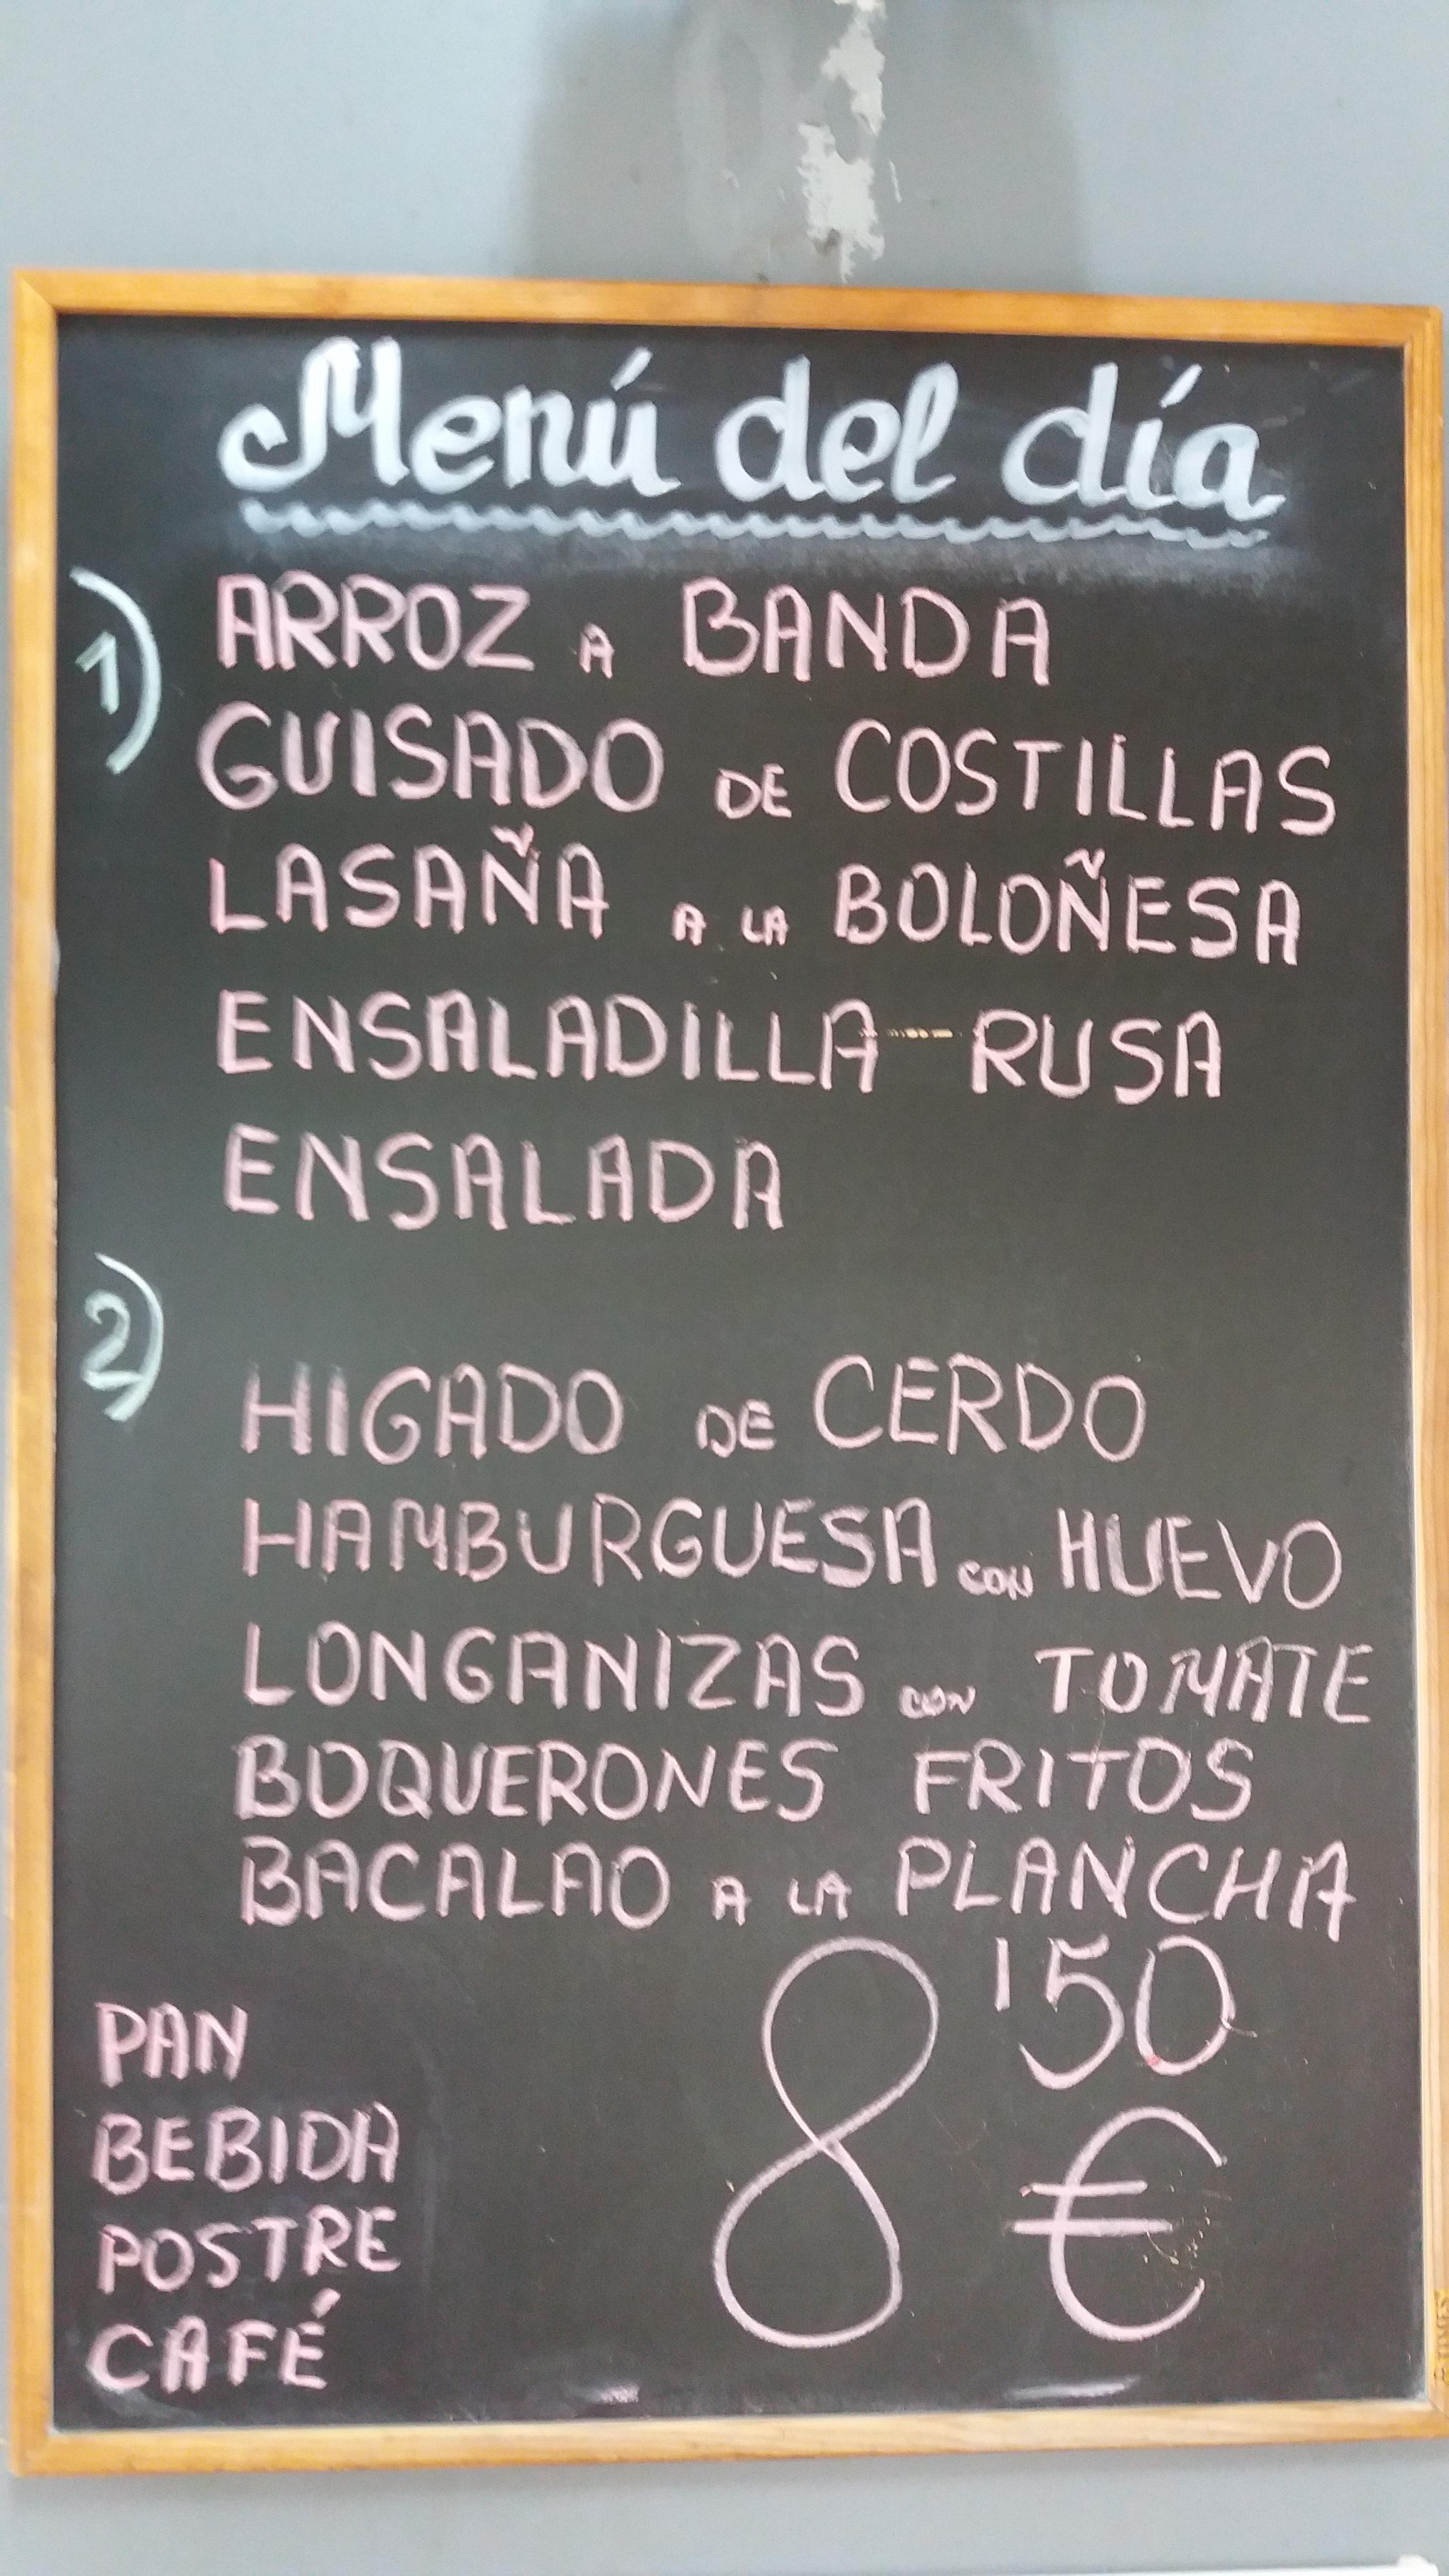 Menú del día
1)
ARROZ A BANDA
GUISADO DE COSTILLAS
LASAÑA A LA BOLOÑESA
ENSALADILLA RUSA
ENSALADA
2)
HIGADO DE CERDO
HAMBURGUESA CON HUEVO
LONGANIZAS CON TOMATE
BOQUERONES FRITOS
BACALAO A LA PLANCHA
8'50 €
PAN
BEBIDA
POSTRE
CAFÉ